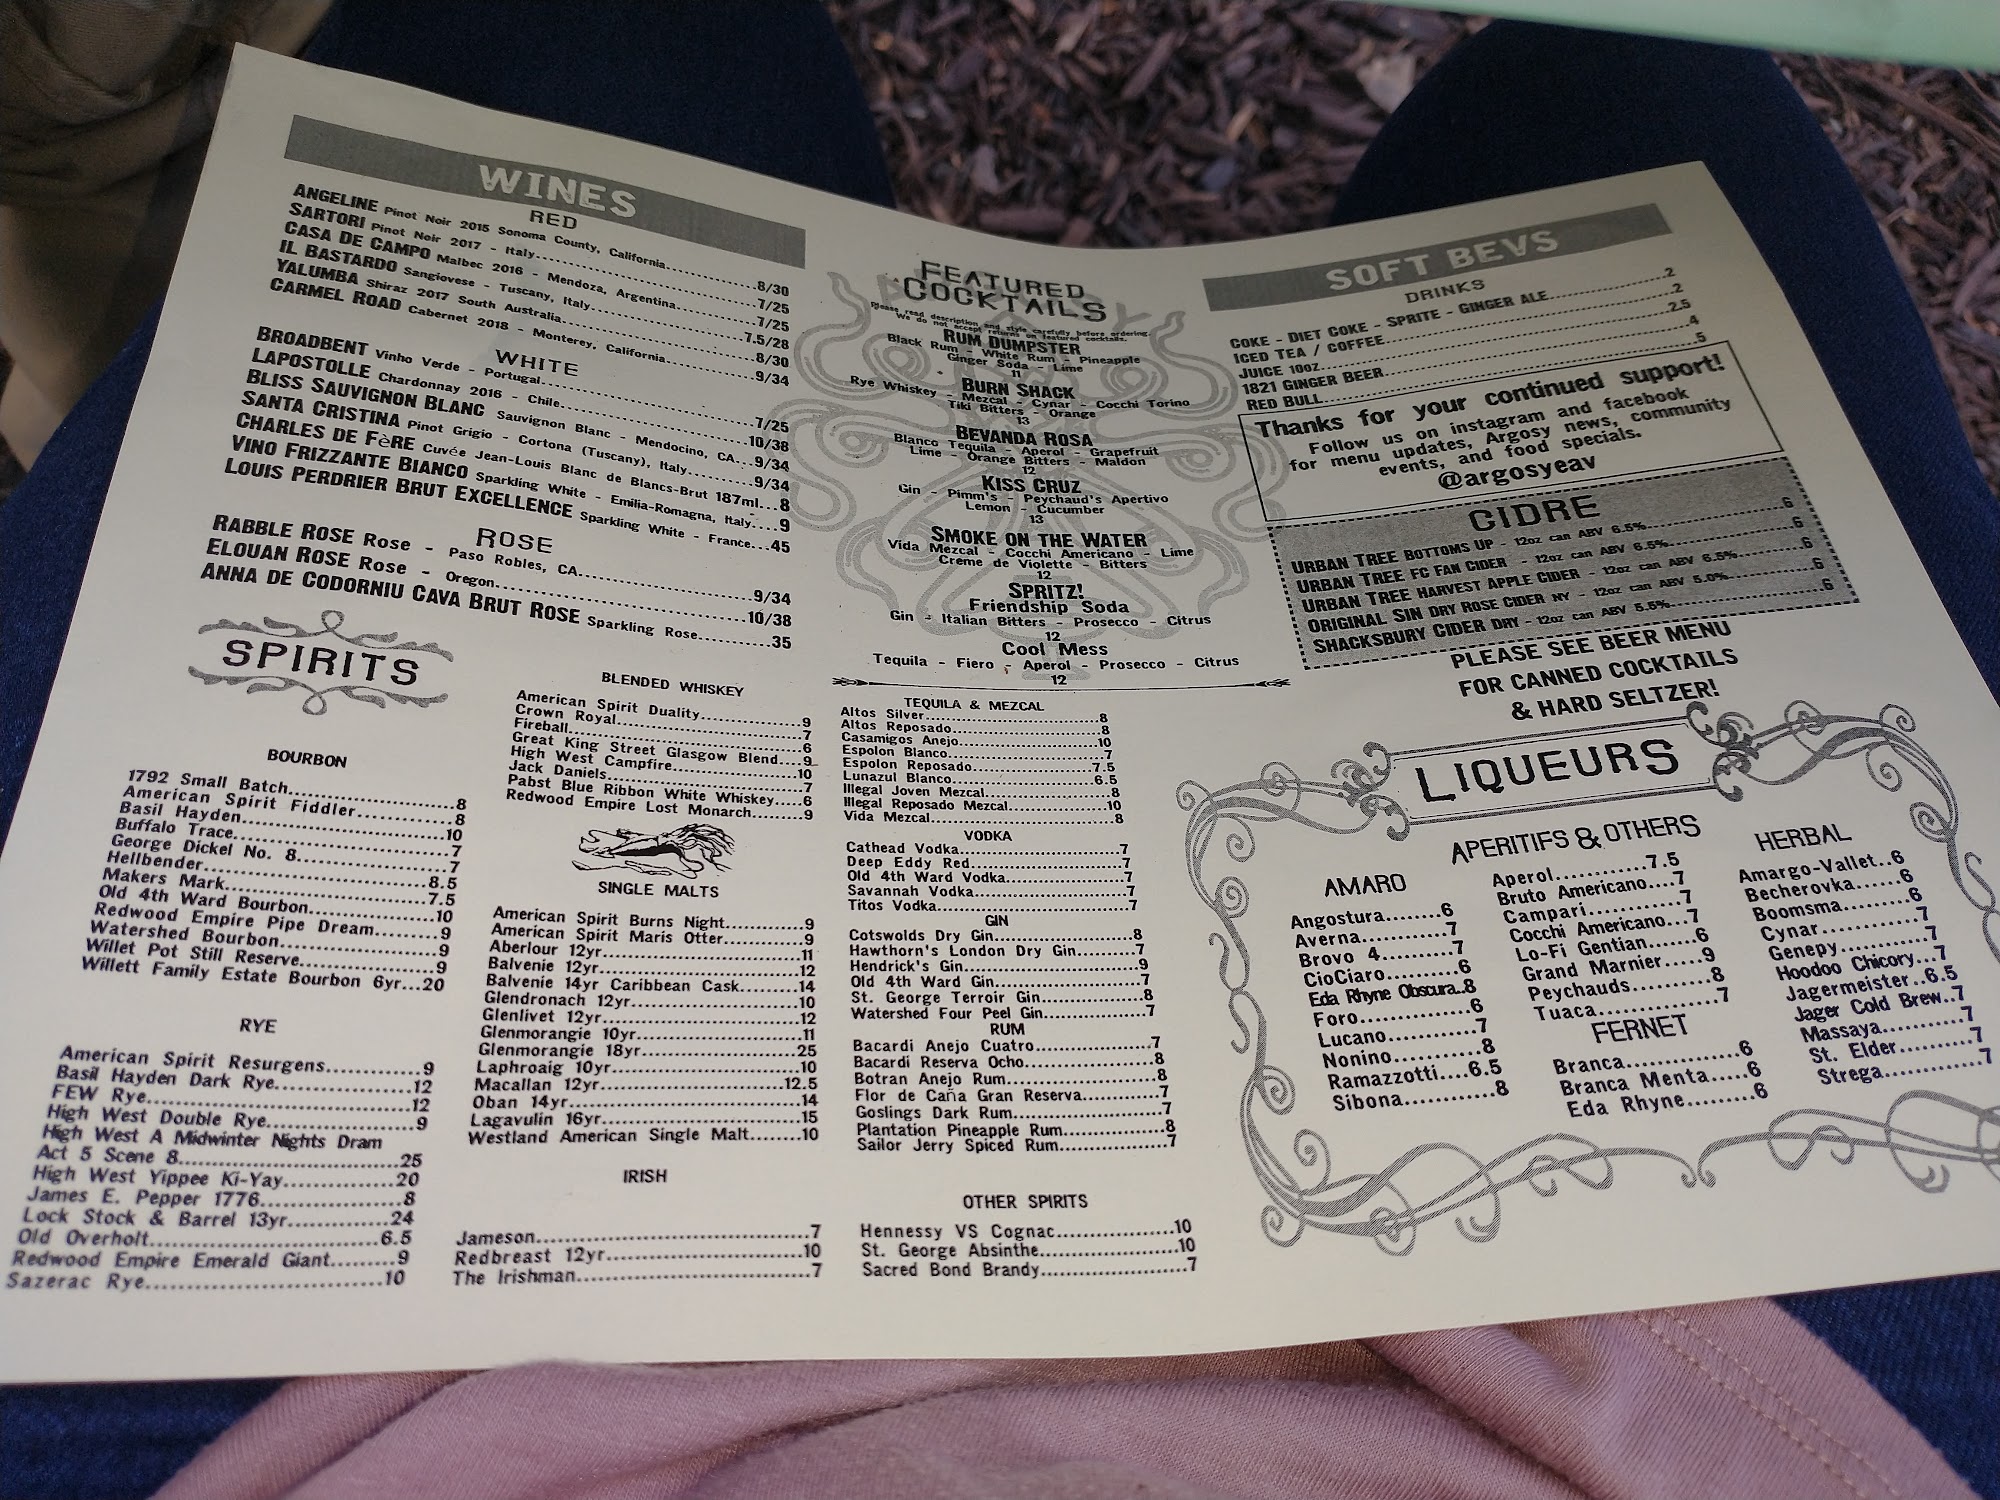 WINES
RED
ANGELINE Pinot Noir 2015 Sonoma County, California..........8/30
SARTORI Pinot Noir 2017 - Italy..........7/25
CASA DE CAMPO Malbec 2016 - Mendoza, Argentina..........7/25
IL BASTARDO Sangiovese - Tuscany, Italy..........7.5/28
YALUMBA Shiraz 2017 South Australia..........8/30
CARMEL ROAD Cabernet 2018 - Monterey, California..........9/34
WHITE
BROADBENT Vinho Verde - Portugal..........7/25
LAPOSTOLLE Chardonnay 2016 - Chile..........10/38
BLISS SAUVIGNON BLANC Sauvignon Blanc - Mendocino, CA...9/34
SANTA CRISTINA Pinot Grigio - Cortona (Tuscany), Italy..........9/34
CHARLES DE FèRE Cuvée Jean-Louis Blanc de Blancs-Brut 187ml...8
VINO FRIZZANTE BIANCO Sparkling White - Emilia-Romagna, Italy....9
LOUIS PERDRIER BRUT EXCELLENCE Sparkling White - France...45
ROSE
RABBLE ROSE Rose - Paso Robles, CA..........9/34
ELOUAN ROSE Rose - Oregon..........10/38
ANNA DE CODORNIU CAVA BRUT ROSE Sparkling Rose..........35
FEATURED
COCKTAILS
Please read description and style carefully before ordering.
We do not accept returns on featured cocktails.
RUM DUMPSTER
Black Rum - White Rum - Pineapple
Ginger Soda - Lime
11
BURN SHACK
Rye Whiskey - Mezcal - Cynar - Cocchi Torino
Tiki Bitters - Orange
13
BEVANDA ROSA
Blanco Tequila - Aperol - Grapefruit
Lime - Orange Bitters - Maldon
12
KISS CRUZ
Gin - Pimm's - Peychaud's Apertivo
Lemon - Cucumber
13
SMOKE ON THE WATER
Vida Mezcal - Cocchi Americano - Lime
Creme de Violette - Bitters
12
SPRITZ!
Friendship Soda
Gin - Italian Bitters - Prosecco - Citrus
12
Cool Mess
Tequila - Fiero - Aperol - Prosecco - Citrus
12
SOFT BEVS
DRINKS
COKE - DIET COKE - SPRITE - GINGER ALE..........2
ICED TEA / COFFEE..........2
JUICE 10OZ..........2.5
1821 GINGER BEER..........4
RED BULL..........5
Thanks for your continued support!
Follow us on instagram and facebook
for menu updates, Argosy news, community
events, and food specials.
@argosyeav
CIDRE
URBAN TREE BOTTOMS UP - 12oz can ABV 6.5%..........6
URBAN TREE FC FAN CIDER - 12oz can ABV 6.5%..........6
URBAN TREE HARVEST APPLE CIDER - 12oz can ABV 6.5%..........6
ORIGINAL SIN DRY ROSE CIDER NY - 12oz can ABV 5.0%..........6
SHACKSBURY CIDER DRY - 12oz can ABV 5.5%..........6
PLEASE SEE BEER MENU
FOR CANNED COCKTAILS
& HARD SELTZER!
SPIRITS
BOURBON
1792 Small Batch..........8
American Spirit Fiddler..........8
Basil Hayden..........10
Buffalo Trace..........7
George Dickel No. 8..........7
Hellbender..........8.5
Makers Mark..........7.5
Old 4th Ward Bourbon..........10
Redwood Empire Pipe Dream..........9
Watershed Bourbon..........9
Willet Pot Still Reserve..........9
Willett Family Estate Bourbon 6yr...20
RYE
American Spirit Resurgens..........9
Basil Hayden Dark Rye..........12
FEW Rye..........12
High West Double Rye..........9
High West A Midwinter Nights Dram
Act 5 Scene 8..........25
High West Yippee Ki-Yay..........20
James E. Pepper 1776..........8
Lock Stock & Barrel 13yr..........24
Old Overholt..........6.5
Redwood Empire Emerald Giant..........9
Sazerac Rye..........10
BLENDED WHISKEY
American Spirit Duality..........9
Crown Royal..........7
Fireball..........6
Great King Street Glasgow Blend....9
High West Campfire..........10
Jack Daniels..........7
Pabst Blue Ribbon White Whiskey....6
Redwood Empire Lost Monarch........9
SINGLE MALTS
American Spirit Burns Night..........9
American Spirit Maris Otter..........9
Aberlour 12yr..........11
Balvenie 12yr..........12
Balvenie 14yr Caribbean Cask........14
Glendronach 12yr..........10
Glenlivet 12yr..........12
Glenmorangie 10yr..........11
Glenmorangie 18yr..........25
Laphroaig 10yr..........10
Macallan 12yr..........12.5
Oban 14yr..........14
Lagavulin 16yr..........15
Westland American Single Malt.......10
IRISH
Jameson..........7
Redbreast 12yr..........10
The Irishman..........7
TEQUILA & MEZCAL
Altos Silver..........8
Altos Reposado..........8
Casamigos Anejo..........10
Espolon Blanco..........7
Espolon Reposado..........7.5
Lunazul Blanco..........6.5
Illegal Joven Mezcal..........8
Illegal Reposado Mezcal..........10
Vida Mezcal..........8
VODKA
Cathead Vodka..........7
Deep Eddy Red..........7
Old 4th Ward Vodka..........7
Savannah Vodka..........7
Titos Vodka..........7
GIN
Cotswolds Dry Gin..........8
Hawthorn's London Dry Gin..........7
Hendrick's Gin..........9
Old 4th Ward Gin..........7
St. George Terroir Gin..........8
Watershed Four Peel Gin..........7
RUM
Bacardi Anejo Cuatro..........7
Bacardi Reserva Ocho..........8
Botran Anejo Rum..........8
Flor de Caña Gran Reserva..........7
Goslings Dark Rum..........7
Plantation Pineapple Rum..........8
Sailor Jerry Spiced Rum..........7
OTHER SPIRITS
Hennessy VS Cognac..........10
St. George Absinthe..........10
Sacred Bond Brandy..........7
LIQUEURS
AMARO
Angostura........6
Averna..........7
Brovo 4..........7
CioCiaro..........6
Eda Rhyne Obscura..8
Foro..........6
Lucano..........7
Nonino..........8
Ramazzotti....6.5
Sibona..........8
APERITIFS & OTHERS
Aperol..........7.5
Bruto Americano....7
Campari..........7
Cocchi Americano...7
Lo-Fi Gentian.......6
Grand Marnier.....9
Peychauds..........8
Tuaca..........7
FERNET
Branca..........6
Branca Menta.....6
Eda Rhyne.........6
HERBAL
Amargo-Vallet..6
Becherovka......6
Boomsma..........6
Cynar..........7
Genepy..........7
Hoodoo Chicory...7
Jagermeister..6.5
Jager Cold Brew..7
Massaya..........7
St. Elder..........7
Strega..........7